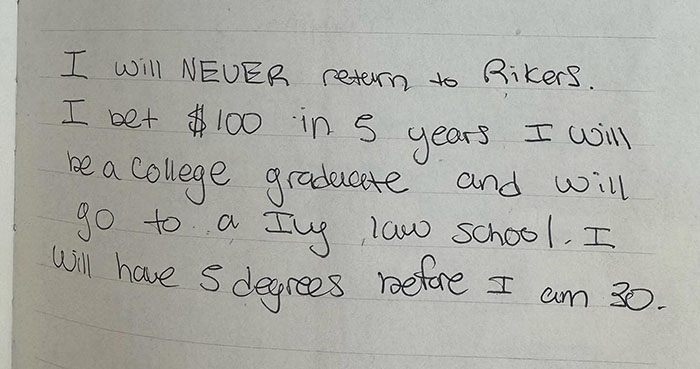 I will NEVER return to Rikers.
I bet $100 in 5 years I will
be a college graduate and will
go to a Ivy law school. I
will have 5 degrees before I am 30.